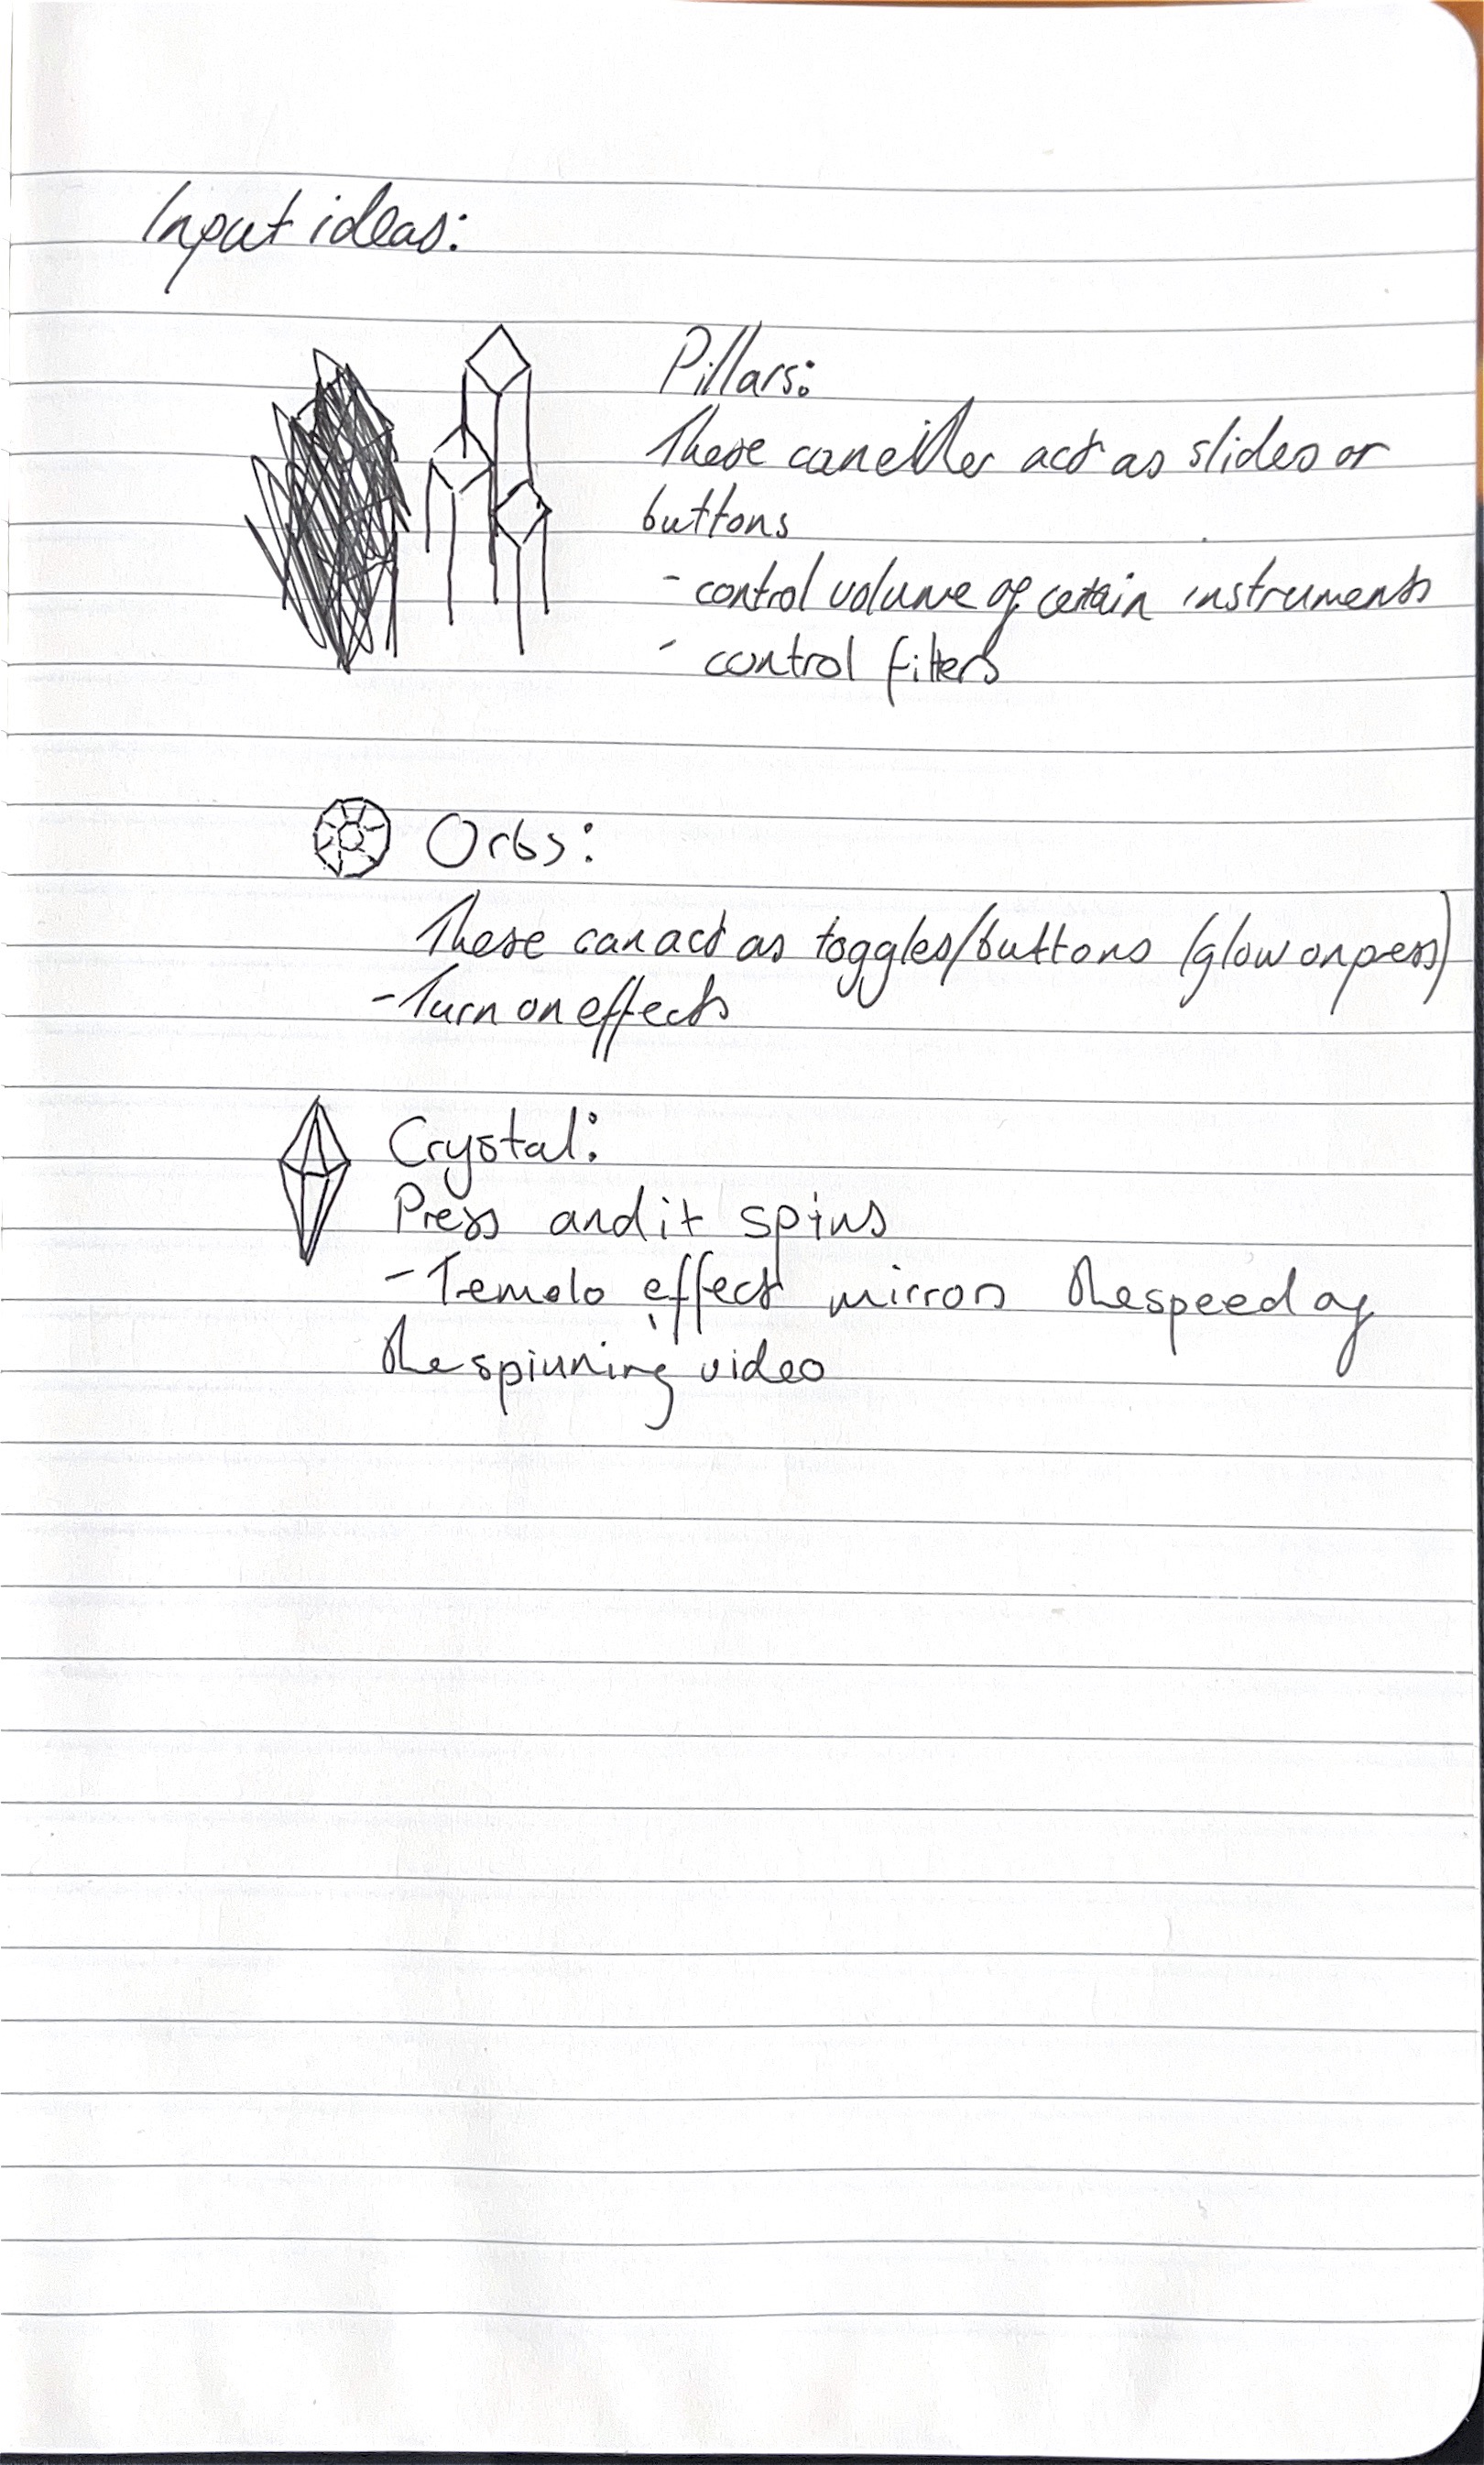 Input ideas:
Pillars:
These can either act as slides or
buttons
- control volume of certain instruments
- control filters
Orbs:
These can act as toggles/buttons (glow on press)
- Turn on effects
Crystal:
Press and it spins
- Temolo effect mirrors the speed of
the spinning video